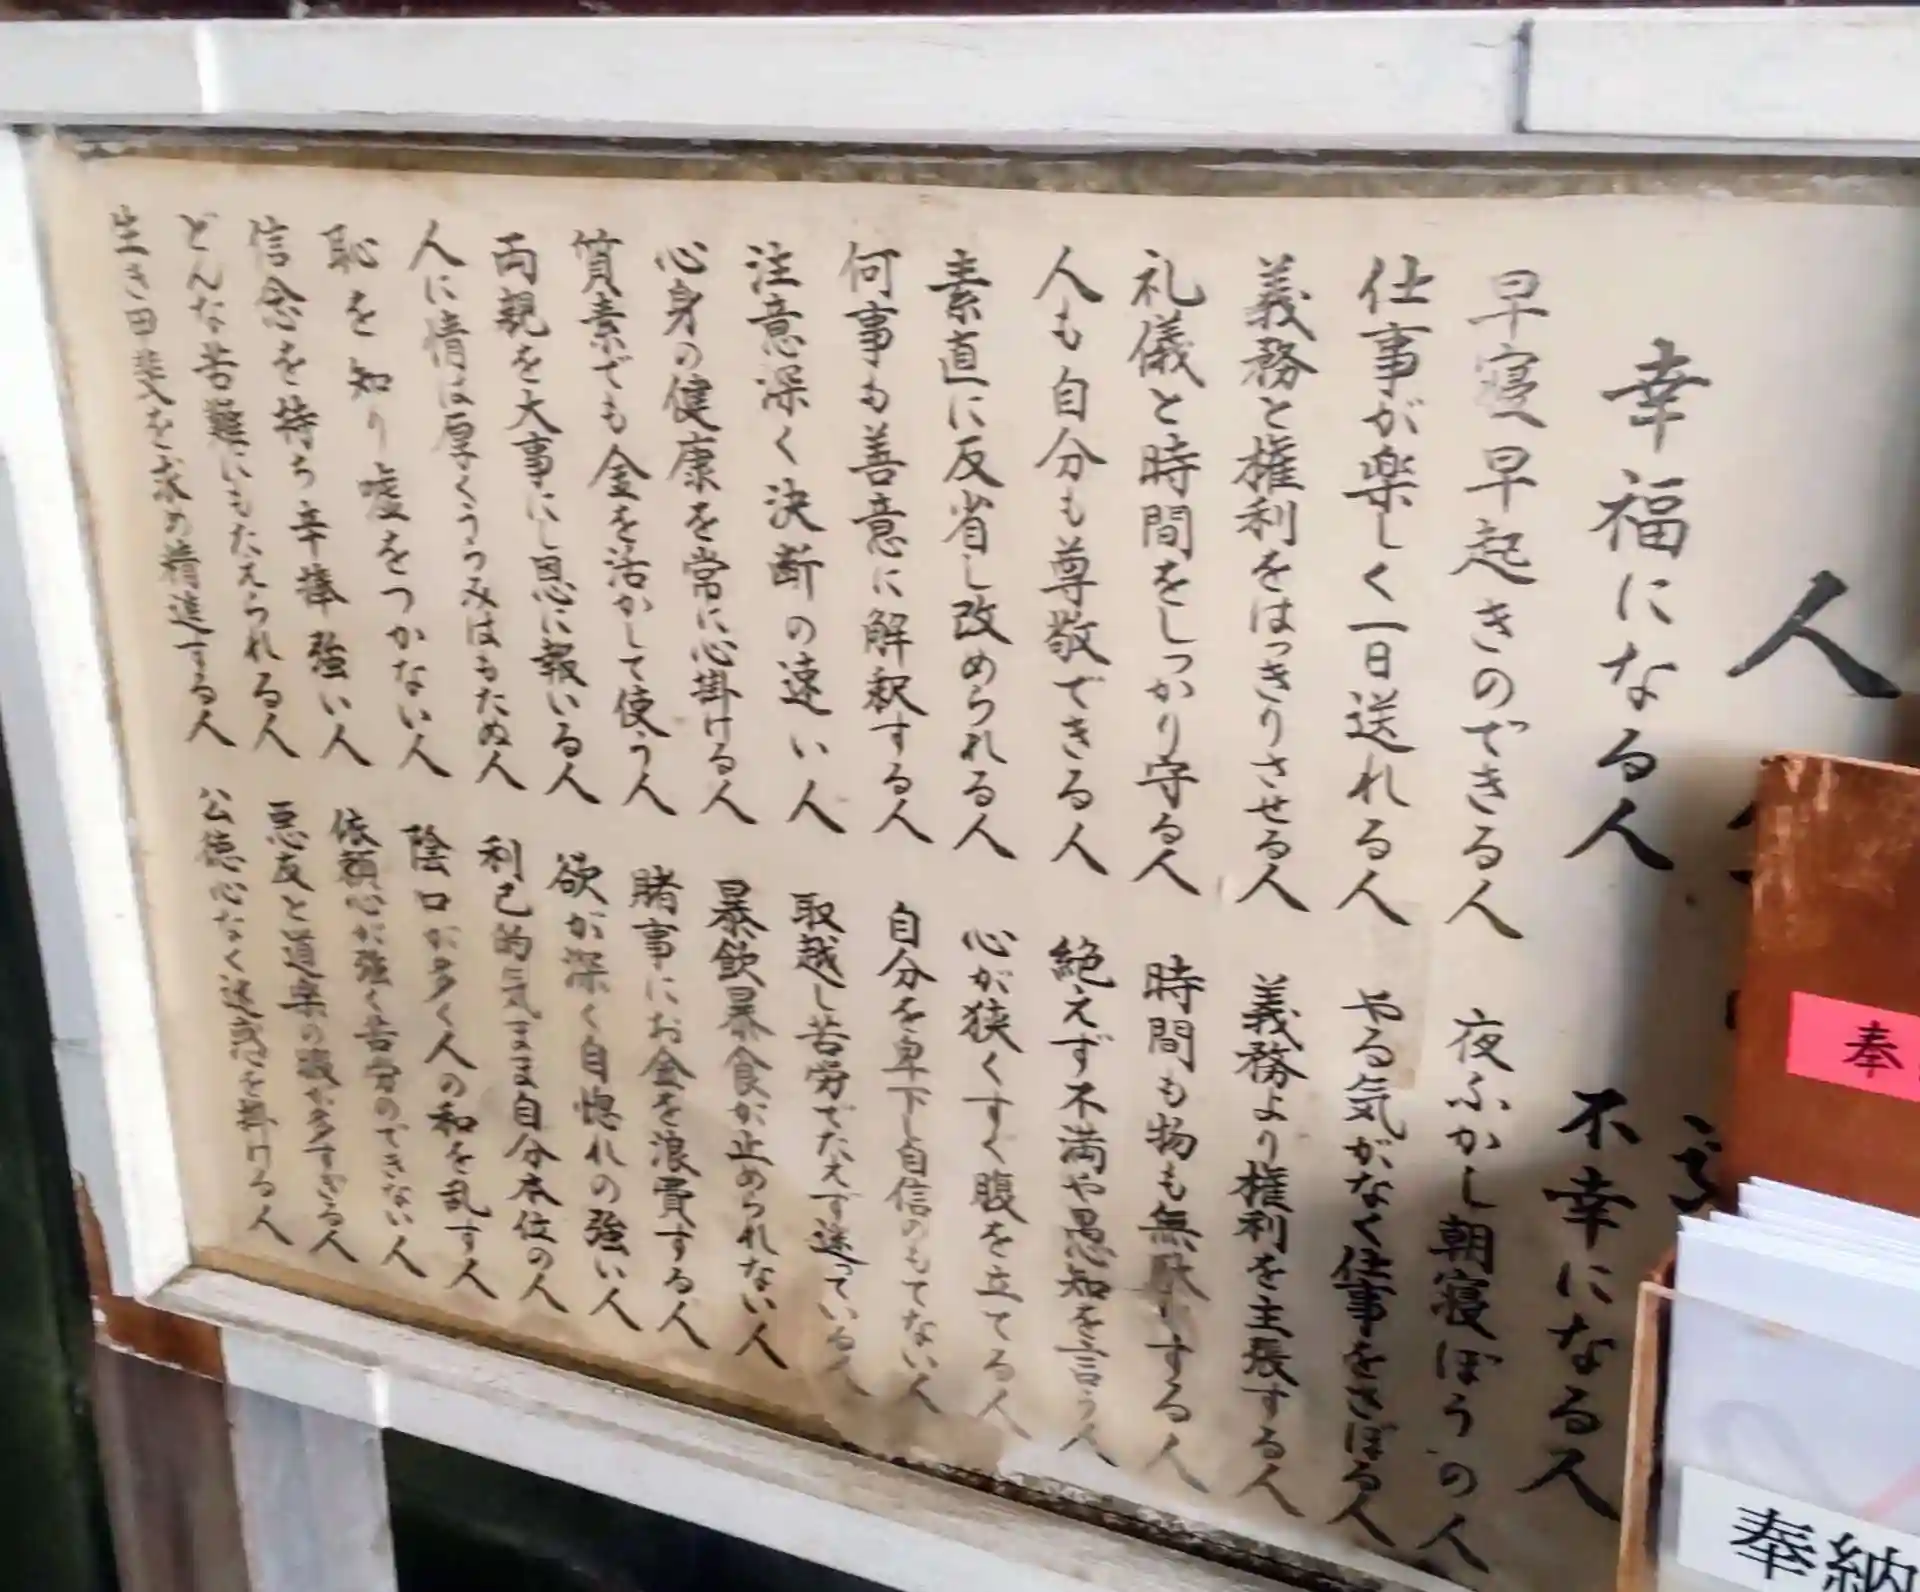 人
幸福になる人
早寝早起きのできる人
仕事が楽しく一日送れる人
義務と権利をはっきりさせる人
礼儀と時間をしっかり守る人
人も自分も尊敬できる人
素直に反省し改められる人
何事も善意に解釈する人
注意深く決断の速い人
心身の健康を常に心掛ける人
質素でも金を活かして使う人
両親を大事にし恩に報いる人
人に情は厚くうらみはもたぬ人
恥を知り嘘をつかない人
信念を持ち辛棒強い人
どんな苦難にもたえられる人
生き甲斐を求め精進する人
不幸になる人
夜ふかし朝寝ぼうの人
やる気がなく仕事をさぼる人
義務より権利を主張する人
時間も物も無駄にする人
絶えず不満や愚知を言う人
心が狭くすぐ腹を立てる人
自分を卑下し自信のもてない人
取越し苦労でたえず迷っている人
暴飲暴食が止められない人
賭事にお金を浪費する人
欲が深く自惚れの強い人
利己的気まま自分本位の人
陰口が多く人の和を乱す人
依頼心が強く苦労のできない人
悪友と道楽の度が多すぎる人
公徳心なく迷惑を掛ける人
奉
奉納